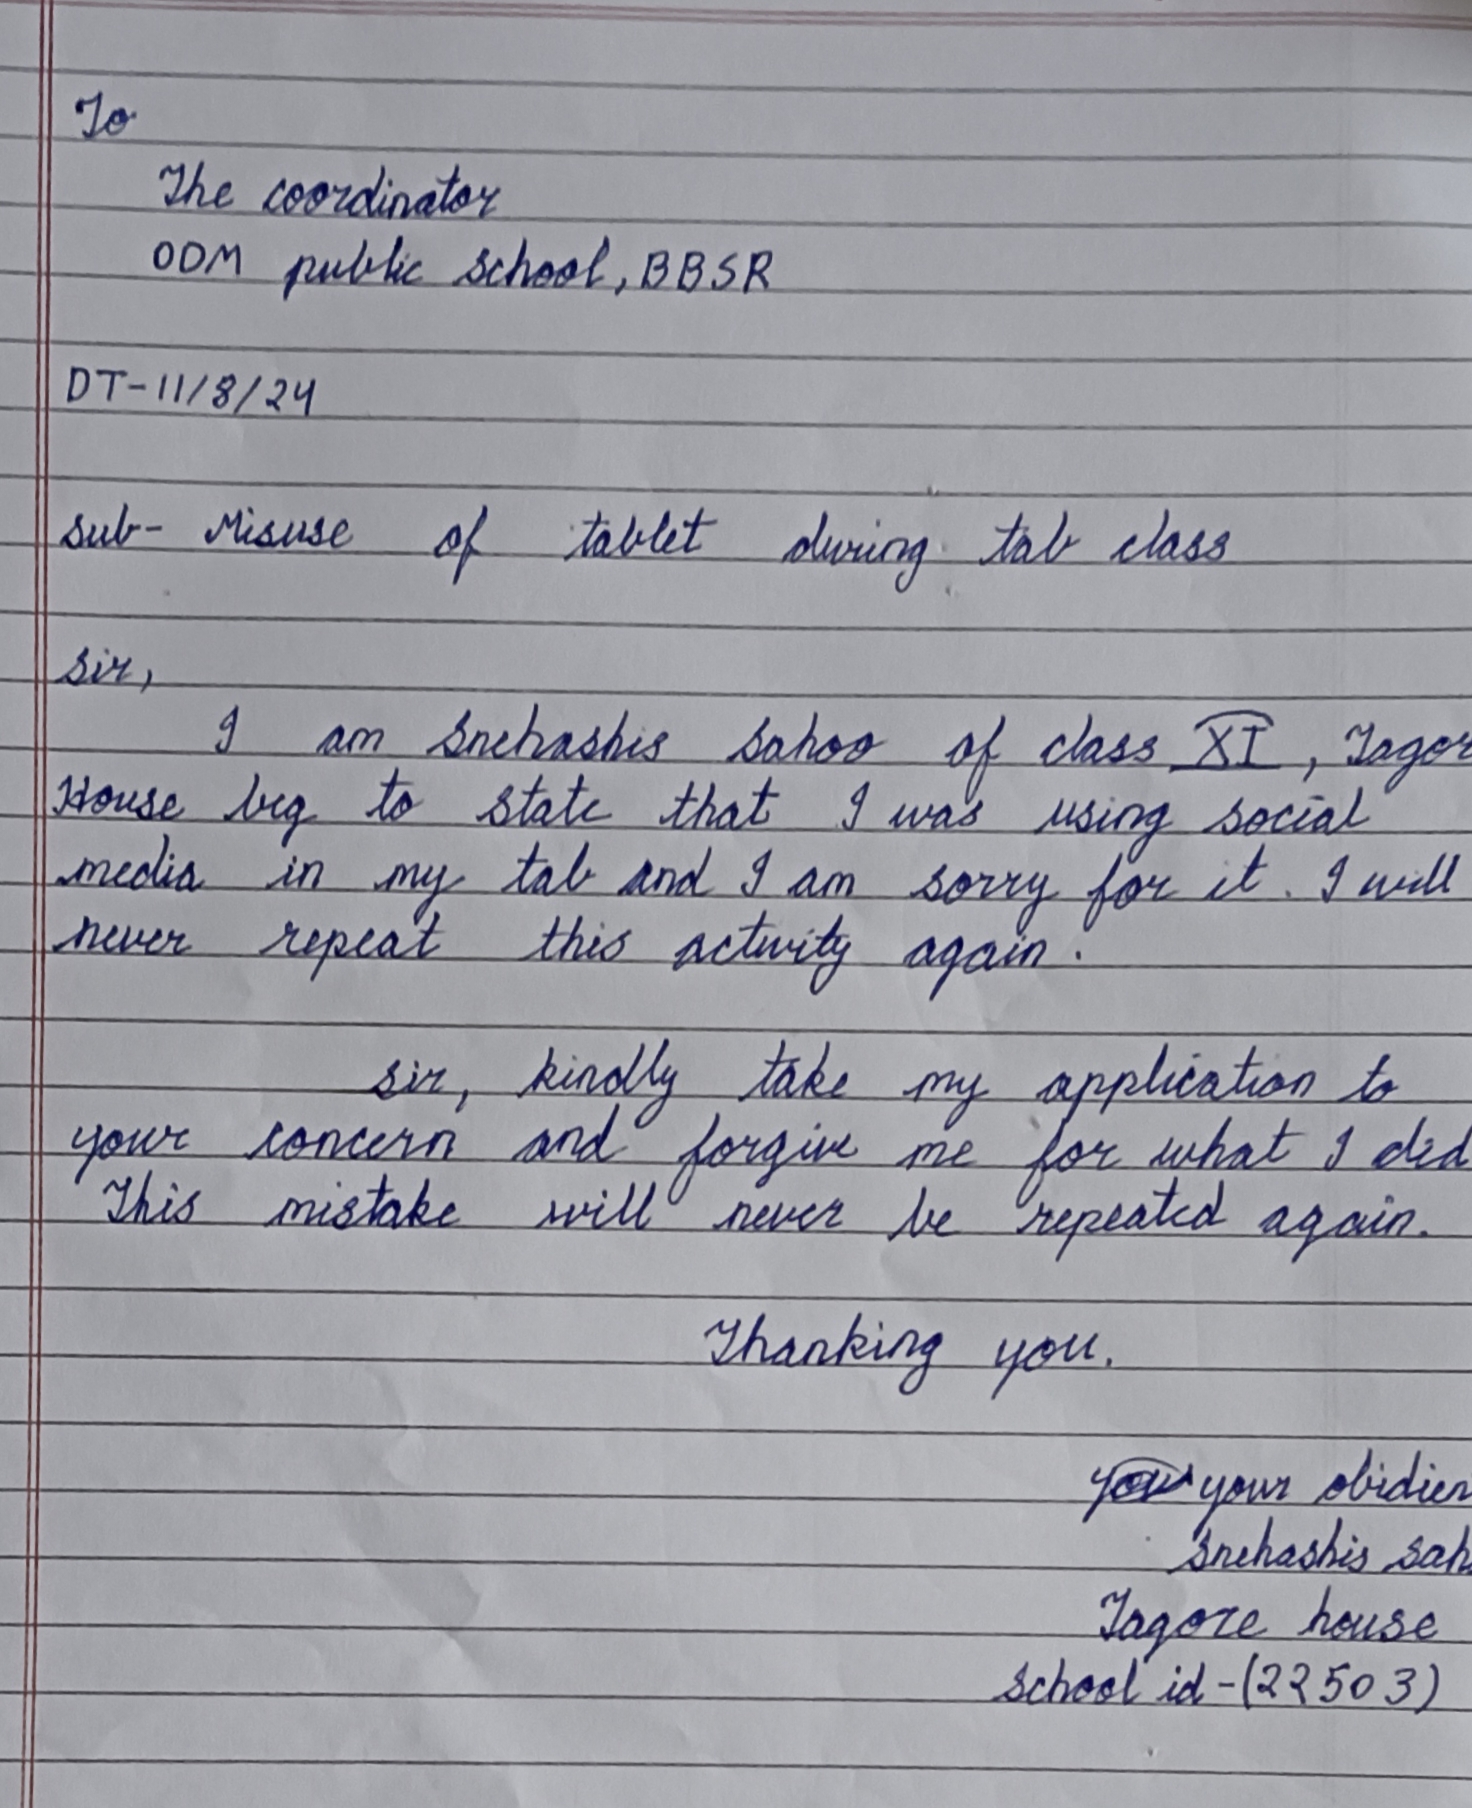 To
The coordinator
ODM public school, BBSR
DT-11/8/24
sub- Misuse of tablet during tab class
sir,
I am Snehashis Sahoo of class XI, Tagor
House beg to state that I was using social
media in my tab and I am sorry for it. I will
never repeat this activity again.
sir, kindly take my application to
your concern and forgive me for what I did
This mistake will never be repeated again.
Thanking you.
your obidien
Snehashis Sah
Tagore house
School id-(22503)